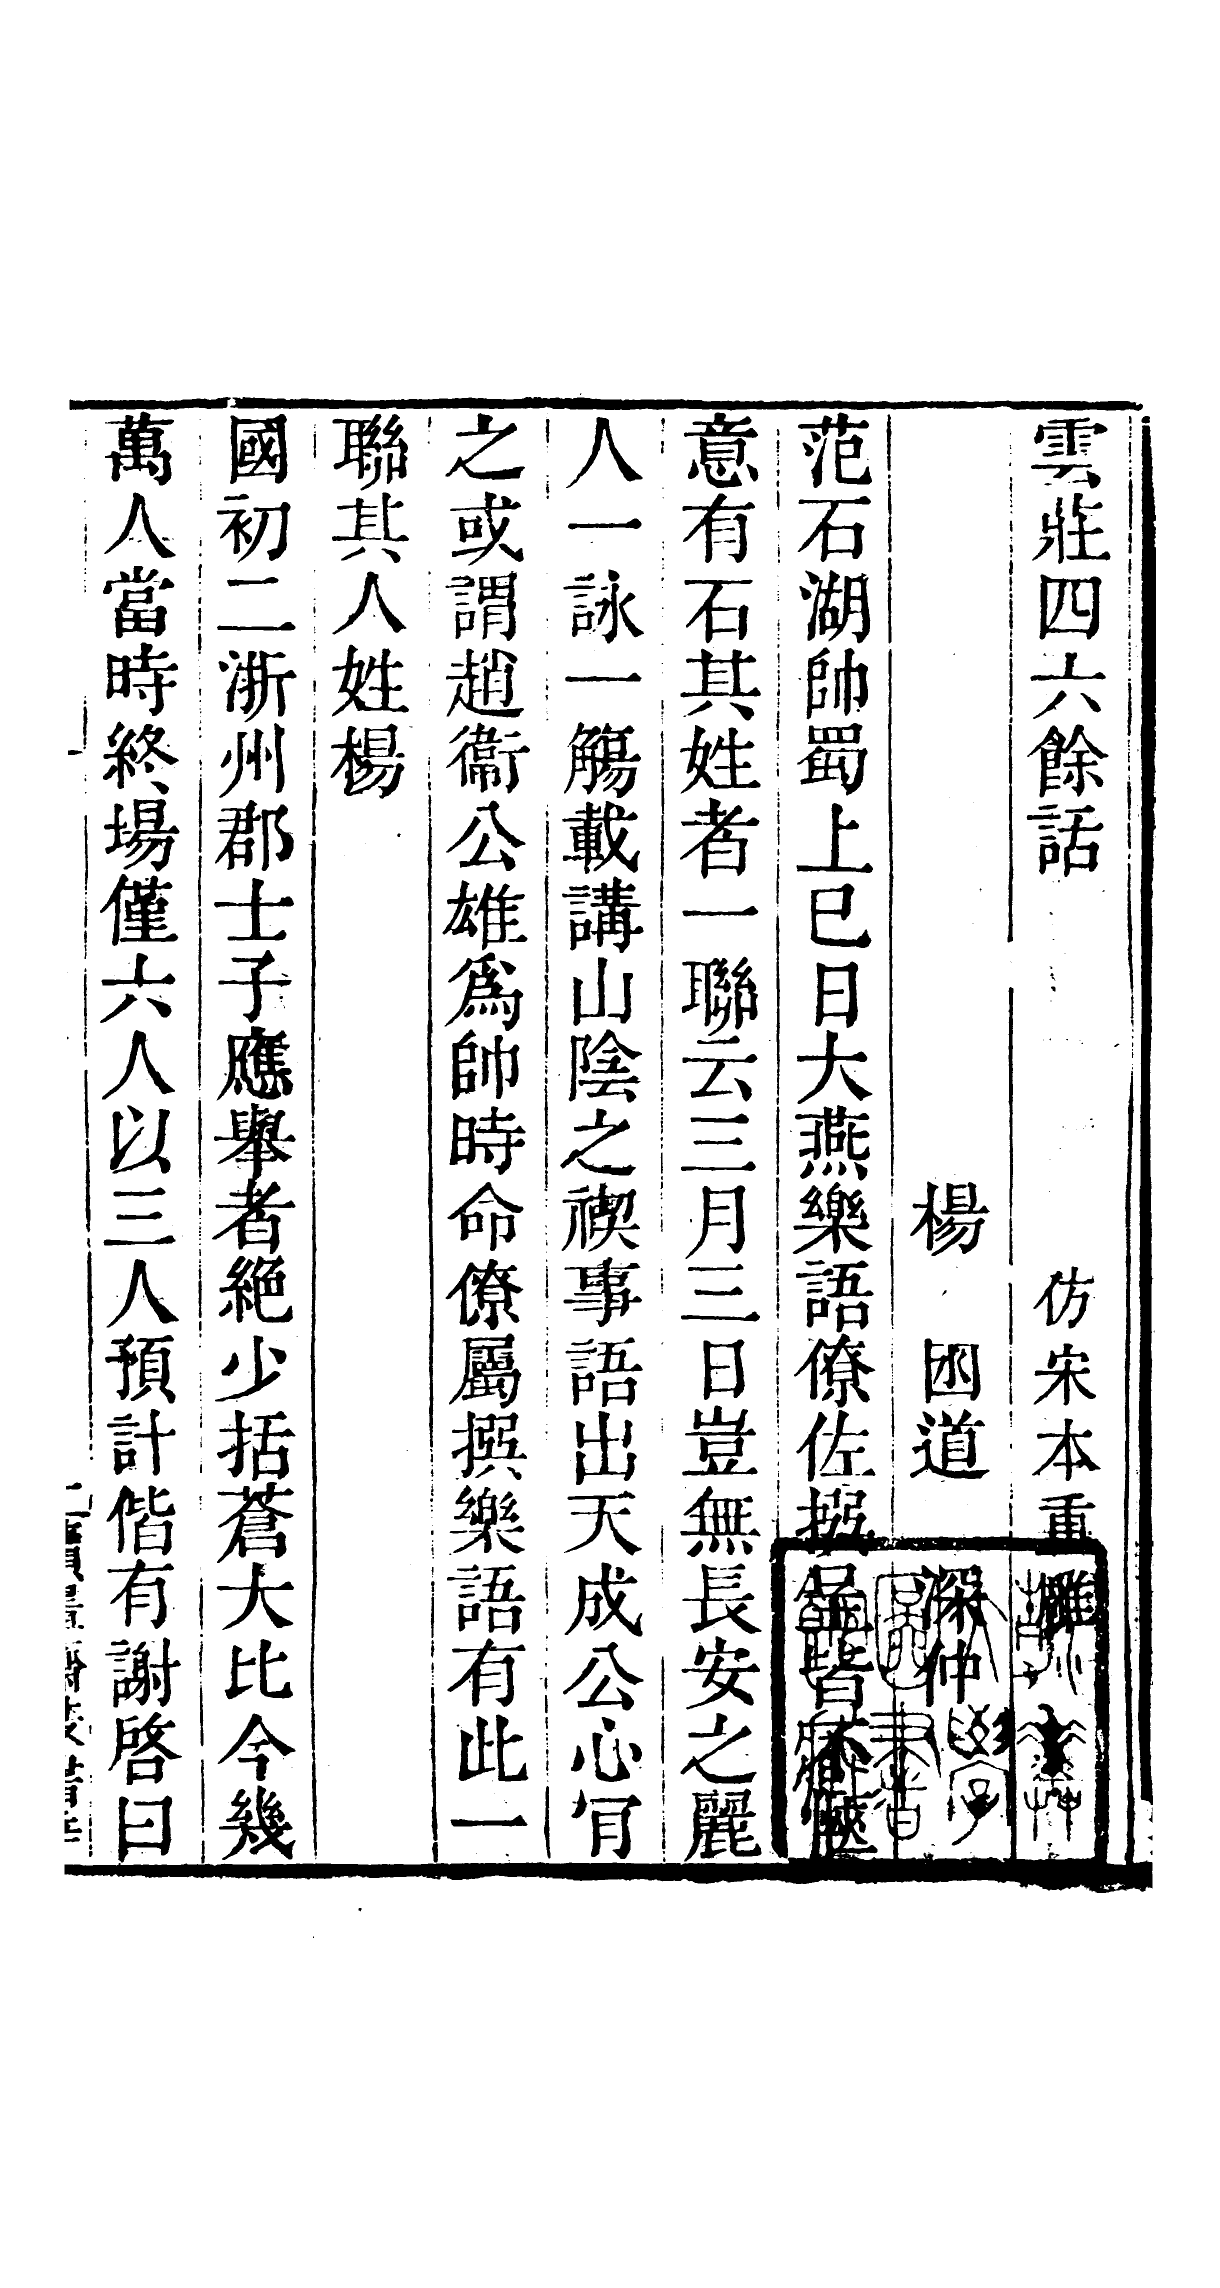 雲莊四六餘話 仿宋本重雕
楊 囦道 深仲
范石湖帥蜀上巳日大燕樂語僚佐撰呈皆不愜
意有石其姓者一聯云三月三日豈無長安之麗
人一詠一觴載講山陰之禊事語出天成公心肎
之或謂趙衞公雄爲帥時命僚屬撰樂語有此一
聯其人姓楊
國初二浙州郡士子應舉者絶少括蒼大比今幾
萬人當時終場僅六人以三人預計偕有謝啓曰